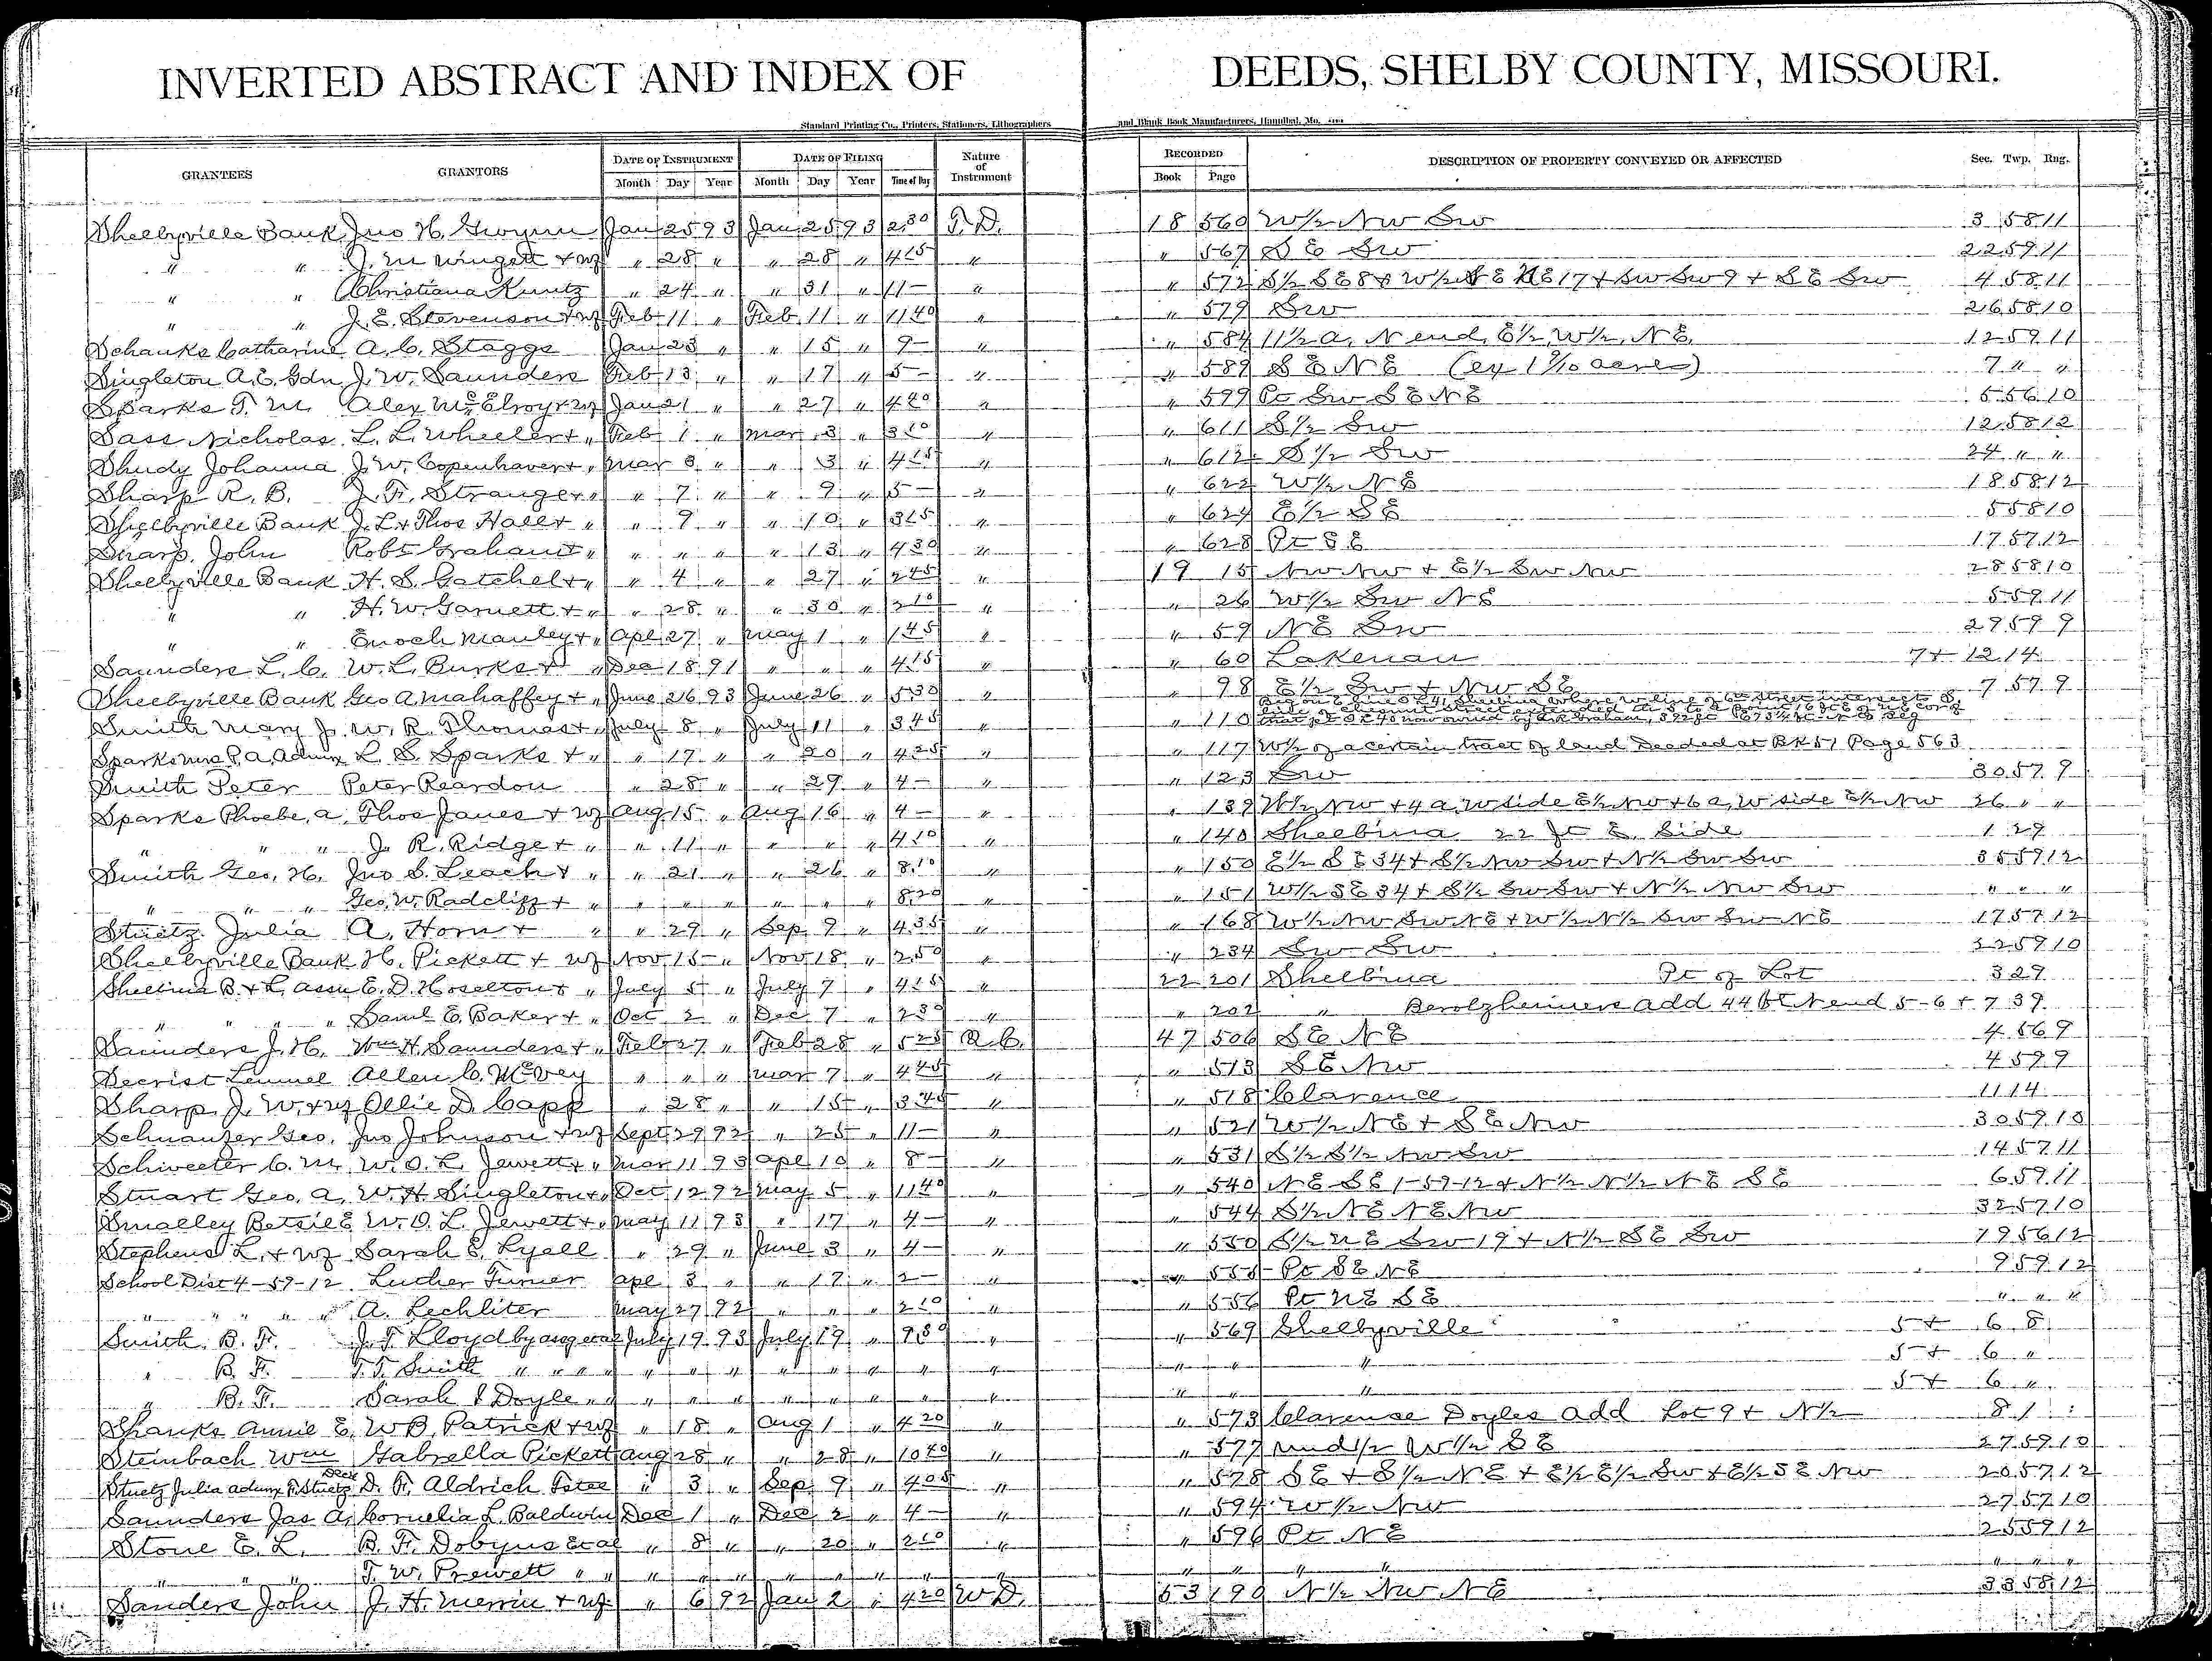 INVERTED ABSTRACT AND INDEX OF DEEDS, SHELBY COUNTY, MISSOURI.
Standard Printing Co., Printers, Stationers, Lithographers and Blank Book Manufacturers, Hannibal, Mo.
GRANTEES GRANTORS DATE OF INSTRUMENT DATE OF FILING Nature of Instrument RECORDED DESCRIPTION OF PROPERTY CONVEYED OR AFFECTED Sec. Twp. Rng.
Month Day Year Month Day Year Time of Day Book Page
Shelbyville Bank Jno H. Gwynn Jan 25 93 Jan 25 93 2 30 T.D. 18 560 W½ NW SW 3 58 11
" " J. M Wingett + wf " 28 " " 28 " 4 15 " " 567 S E SW 22 59 11
" " Christiana Kuntz " 24 " " 31 " 11 – " " 572 S½ SE 8 + W½ SE NE 17 + SW SW 9 + S E SW 4 58 11
" " J. E. Stevenson + wf Feb 11 " Feb 11 " 11 40 " " 579 SW 26 58 10
Schanks Catharine A. C. Staggs Jan 23 " " 15 " 9 – " " 584 11½ a, N end, E½, W½, N E. 12 59 11
Singleton A. E. Gdn J. W. Saunders Feb 13 " " 17 " 5 – " " 589 S E N E (ex 1 9/10 acres) 7 " "
Sparks T. M. Alex McElroy + wf Jan 21 " " 27 " 4 20 " " 599 Pt SW S E N E 5 56 10
Sass Nicholas L. L. Wheeler + " Feb 1 " Mar 3 " 3 10 " " 611 S½ SW 12 58 12
Shudy Johanna J. W. Copenhaver + " Mar 3 " " 3 " 4 15 " " 612 S½ SW 24 " "
Sharp R. B. J. F. Stranger " " 7 " " 9 " 5 – " " 622 W½ N E 18 58 12
Shelbyville Bank J. L + Thos Hall + " " 9 " " 10 " 3 15 " " 624 E½ S E 5 58 10
Sharp, John Robt Graham + " " " " " 13 " 4 30 " " 628 Pt S E 17 57 12
Shelbyville Bank H. S. Gatchel + " " 4 " " 27 " 2 45 " 19 15 NW NW + E½ SW NW 28 58 10
" " H. W. Garnett + " " 28 " " 30 " 2 10 " " 26 W½ SW N E 5 59 11
" " Enoch Manley + " Apl 27 " May 1 " 1 45 " " 59 N E SW 29 59 9
Saunders L. C. W. L. Burks + " Dec 18 91 " " " 4 15 " " 60 Lakenan 7+ 12 14
Shelbyville Bank Geo A. Mahaffey + " June 26 93 June 26 " 5 30 " " 98 E½ SW + NW S E 7 57 9
Smith Mary J. W. R. Thomas + " July 8 " July 11 " 3 45 " " 110
Sparks Mrs P. A. Admx L. S. Sparks + " " 17 " " 20 " 4 25 " " 117 W½ of a certain tract of land Deeded at BK 51 Page 563
Smith Peter Peter Reardon " 28 " " 29 " 4 – " " 123 SW 30 57 9
Sparks Phoebe, A. Thos Janes + wf Aug 15 " Aug 16 " 4 – " " 139 W½ NW + 4 a, W side E½ NW + 6 a, W side E½ NW 26 " "
" " " J. R. Ridge + " " 11 " " " " 4 10 " " 140 Shelbina 22 ft E. Side 1 29
Smith Geo. H. Jno S. Leach + " " 21 " " 26 " 8 10 " " 150 E½ S E 34 + S½ NW SW + N½ SW SW 35 59 12
" " " Geo. W. Radcliff + " " " " " " " 8 20 " " 151 W½ S E 34 + S½ SW SW + N½ NW SW " " "
Stuetz Julia A. Horn + " " 29 " Sep 9 " 4 35 " " 168 W½ NW SW NE + W½ N½ SW SW NE 17 57 12
Shelbyville Bank H. Pickett + wf Nov 15 " Nov 18 " 2 50 " " 234 SW SW 32 59 10
Shelbina B. + L. Assn E. D. Hoselton + " July 5 " July 7 " 4 15 " 22 201 Shelbina Pt of Lot 3 29
" " " " Saml E. Baker + " Oct 2 " Dec 7 " 2 30 " " 202 " Berolzheimers add 44 ft N end 5-6 + 7 39
Saunders J. H. Wm H. Saunders + " Feb 27 " Feb 28 " 5 25 Q.C. 47 506 S E N E 4 56 9
Secrist Lemuel Allen C. McVey " " " Mar 7 " 4 45 " " 513 S E NW 4 59 9
Sharp J. W. + wf Ollie D. Capp " 28 " " 15 " 3 45 " " 518 Clarence 11 14
Schnauzer Geo. Jno Johnson + wf Sept 29 92 " 25 " 11 – " " 521 W½ N E + S E NW 30 59 10
Schweeter C. M. W. O. L. Jewett + " Mar 11 93 Apl 10 " 8 – " " 531 S½ S½ NW SW 14 57 11
Stuart Geo. A. W. H. Singleton + " Oct 12 92 May 5 " 11 40 " " 540 N E S E 1-59-12 + N½ N½ N E S E 6 59 11
Smalley Betsie E W. O. L. Jewett + " May 11 93 " 17 " 4 – " " 544 S½ N E N E NW 32 57 10
Stephens L. + wf Sarah E. Lyell " 29 " June 3 " 4 – " " 550 S½ N E SW 19 + N½ S E SW 19 56 12
School Dist 4-59-12 Luther Turner Apl 3 " " 17 " 2 – " " 555 Pt S E N E 9 59 12
" " " " A. Lechliter May 27 92 " " " 2 10 " " 556 Pt N E S E " " "
Smith B. F. J. T. Lloyd by asg etal July 19 93 July 19 " 9 30 " " 569 Shelbyville 5+ 6 8
" B. F. T. T. Smith " " " " " " " " " " " " " " " 5+ 6 "
" B. F. Sarah I Doyle " " " " " " " " " " " " " 5+ 6 "
Shanks Annie E. W B. Patrick + wf " 18 " Aug 1 " 4 20 " " 573 Clarence Doyles add Lot 9 + N½ 8 1
Steinbach Wm Gabrella Pickett Aug 28 " " 28 " 10 40 " " 577 und½ W½ S E 27 59 10
Stuetz Julia Admx F. Stuetz Decd D. F. Aldrich Tstee " 3 " Sep 9 " 4 05 " " 578 S E + S½ N E + E½ E½ SW + E½ S E NW 20 57 12
Saunders Jas A. Cornelia L. Baldwin Dec 1 " Dec 2 " 4 – " " 594 W½ NW 27 57 10
Stone E. L. B. F. Dobyns Etal " 8 " " 20 " 2 10 " " 596 Pt N E 25 59 12
" " " T. W. Prewett " " " " " " " " " " " " " " " " "
Sanders John J. H. Merrin + wf " 6 92 Jan 2 " 4 20 W D. 53 190 N½ NW N E 33 58 12